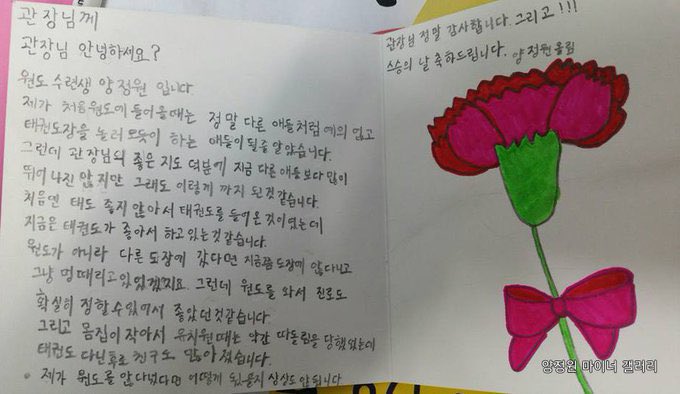 관장님께
관장님 안녕하세요?
원도 수련생 양정원 입니다.
제가 처음 원도에 들어올때는 정말 다른 애들처럼 예의 없고
태권도장을 놀러 오듯이 하는 애들이 될줄 알았습니다.
그런데 관장님의 좋은 지도 덕분에 지금 다른 애들 보다 많이
뛰어 나진 않지만 그래도 이렇게 까지 된것 같습니다.
처음엔 태도 좋지 않아서 태권도를 들어온 것이였는데
지금은 태권도가 좋아서 하고 있는 것 같습니다.
원도가 아니라 다른 도장에 갔다면 지금쯤 도장에 안다니고
그냥 멍때리고 있었겠지요. 그런데 원도를 와서 진로도
확실히 정할수 있어서 좋았던것 같습니다
그리고 몸집이 작아서 유치원때는 약간 따돌림을 당했었는데
태권도 다닌후로 친구도 많아졌습니다.
제가 원도를 안다녔다면 어떻게 됬을지 상상도 안됩니다
관장님 정말 감사합니다. 그리고!!!
스승의 날 축하드립니다. 양정원올림
양정원 마이너 갤러리